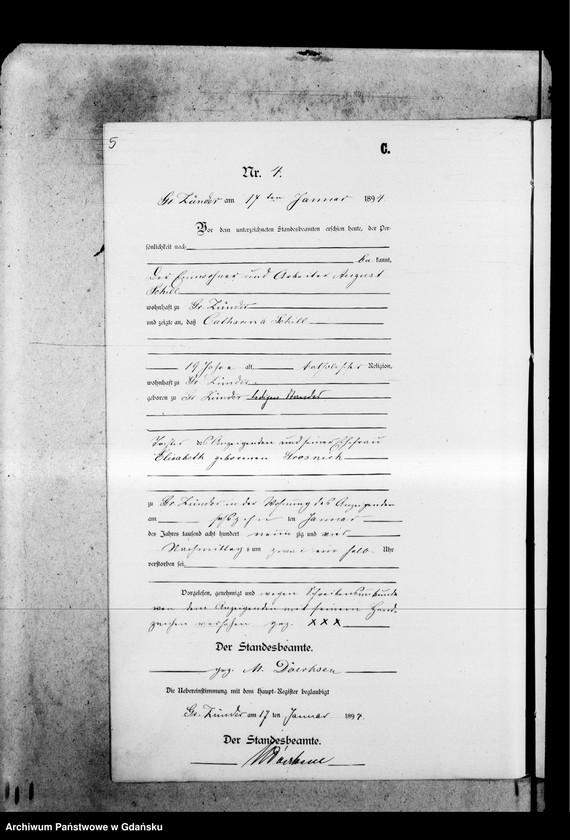 5
C.
Nr. 4.
Gr. Zünder am 17 ten Januar 1894
Vor dem unterzeichneten Standesbeamten erschien heute, der Per-
sönlichkeit nach
bekannt,
Der Einwohner und Arbeiter August
Schill
wohnhaft zu Gr. Zünder
und zeigte an, daß Catharina Schill
19 Jahre alt, katholischer Religion,
wohnhaft zu Gr. Zünder
geboren zu Gr. Zünder ledigen Standes
Tochter des Anzeigenden und seiner Ehefrau
Elisabeth geborenen
zu Gr. Zünder in der Wohnung des Anzeigenden
am sechszehn ten Januar
des Jahres tausend acht hundert neunzig und vier
Nachmittag s um zwei ein halb Uhr
verstorben sei,
Vorgelesen, genehmigt und wegen Schreibensunkunde
von dem Anzeigenden mit seinem Hand-
zeichen versehen gez. XXX
Der Standesbeamte.
gez. M. Doerksen
Die Uebereinstimmung mit dem Haupt-Register beglaubigt
Gr. Zünder am 17 ten Januar 1894.
Der Standesbeamte.
MDoerksen
Archiwum Państwowe w Gdańsku